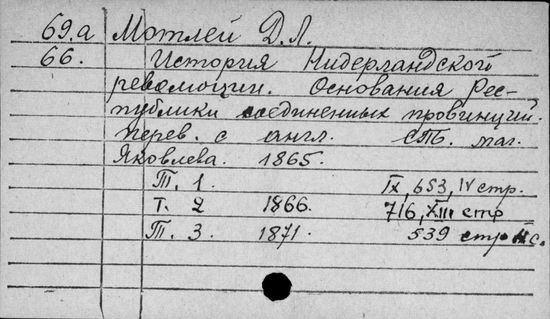 69.а Мотлей Д.Л.
66. История Нидерландской
революции. Основания Рес-
публики соединенных провинций.
Перев. с англ. СПб. маг.
Яковлева. 1865.
Т. 1. IX, 653, IV стр.
Т. 2 1866. 716, XIII стр
Т. 3. 1871. 539 стр